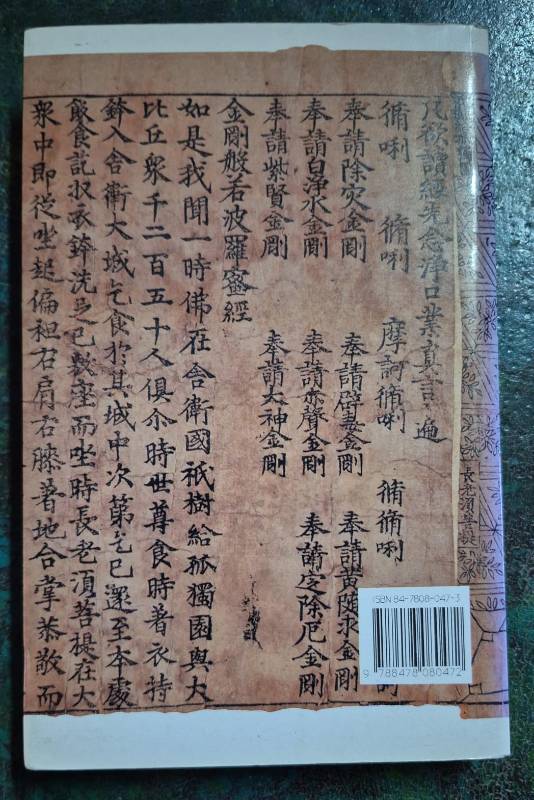 長老湏菩提
凡欲讀經先念淨口業真言一遍
脩唎 脩唎 摩訶脩唎 脩脩唎
奉請除灾金剛 奉請辟毒金剛 奉請黄随求金剛
奉請白淨水金剛 奉請赤聲金剛 奉請定除厄金剛
奉請紫賢金剛 奉請大神金剛
金剛般若波羅蜜經
如是我聞一時佛在舍衛國祇樹給孤獨園與大
比丘衆千二百五十人俱尒時世尊食時著衣持
鉢入舍衛大城乞食於其城中次第乞已還至本處
飯食訖収衣鉢洗足已敷座而坐時長老湏菩提在大
衆中即從坐起偏袒右肩右膝著地合掌恭敬而
ISBN 84-7808-047-3
9 788478 080472